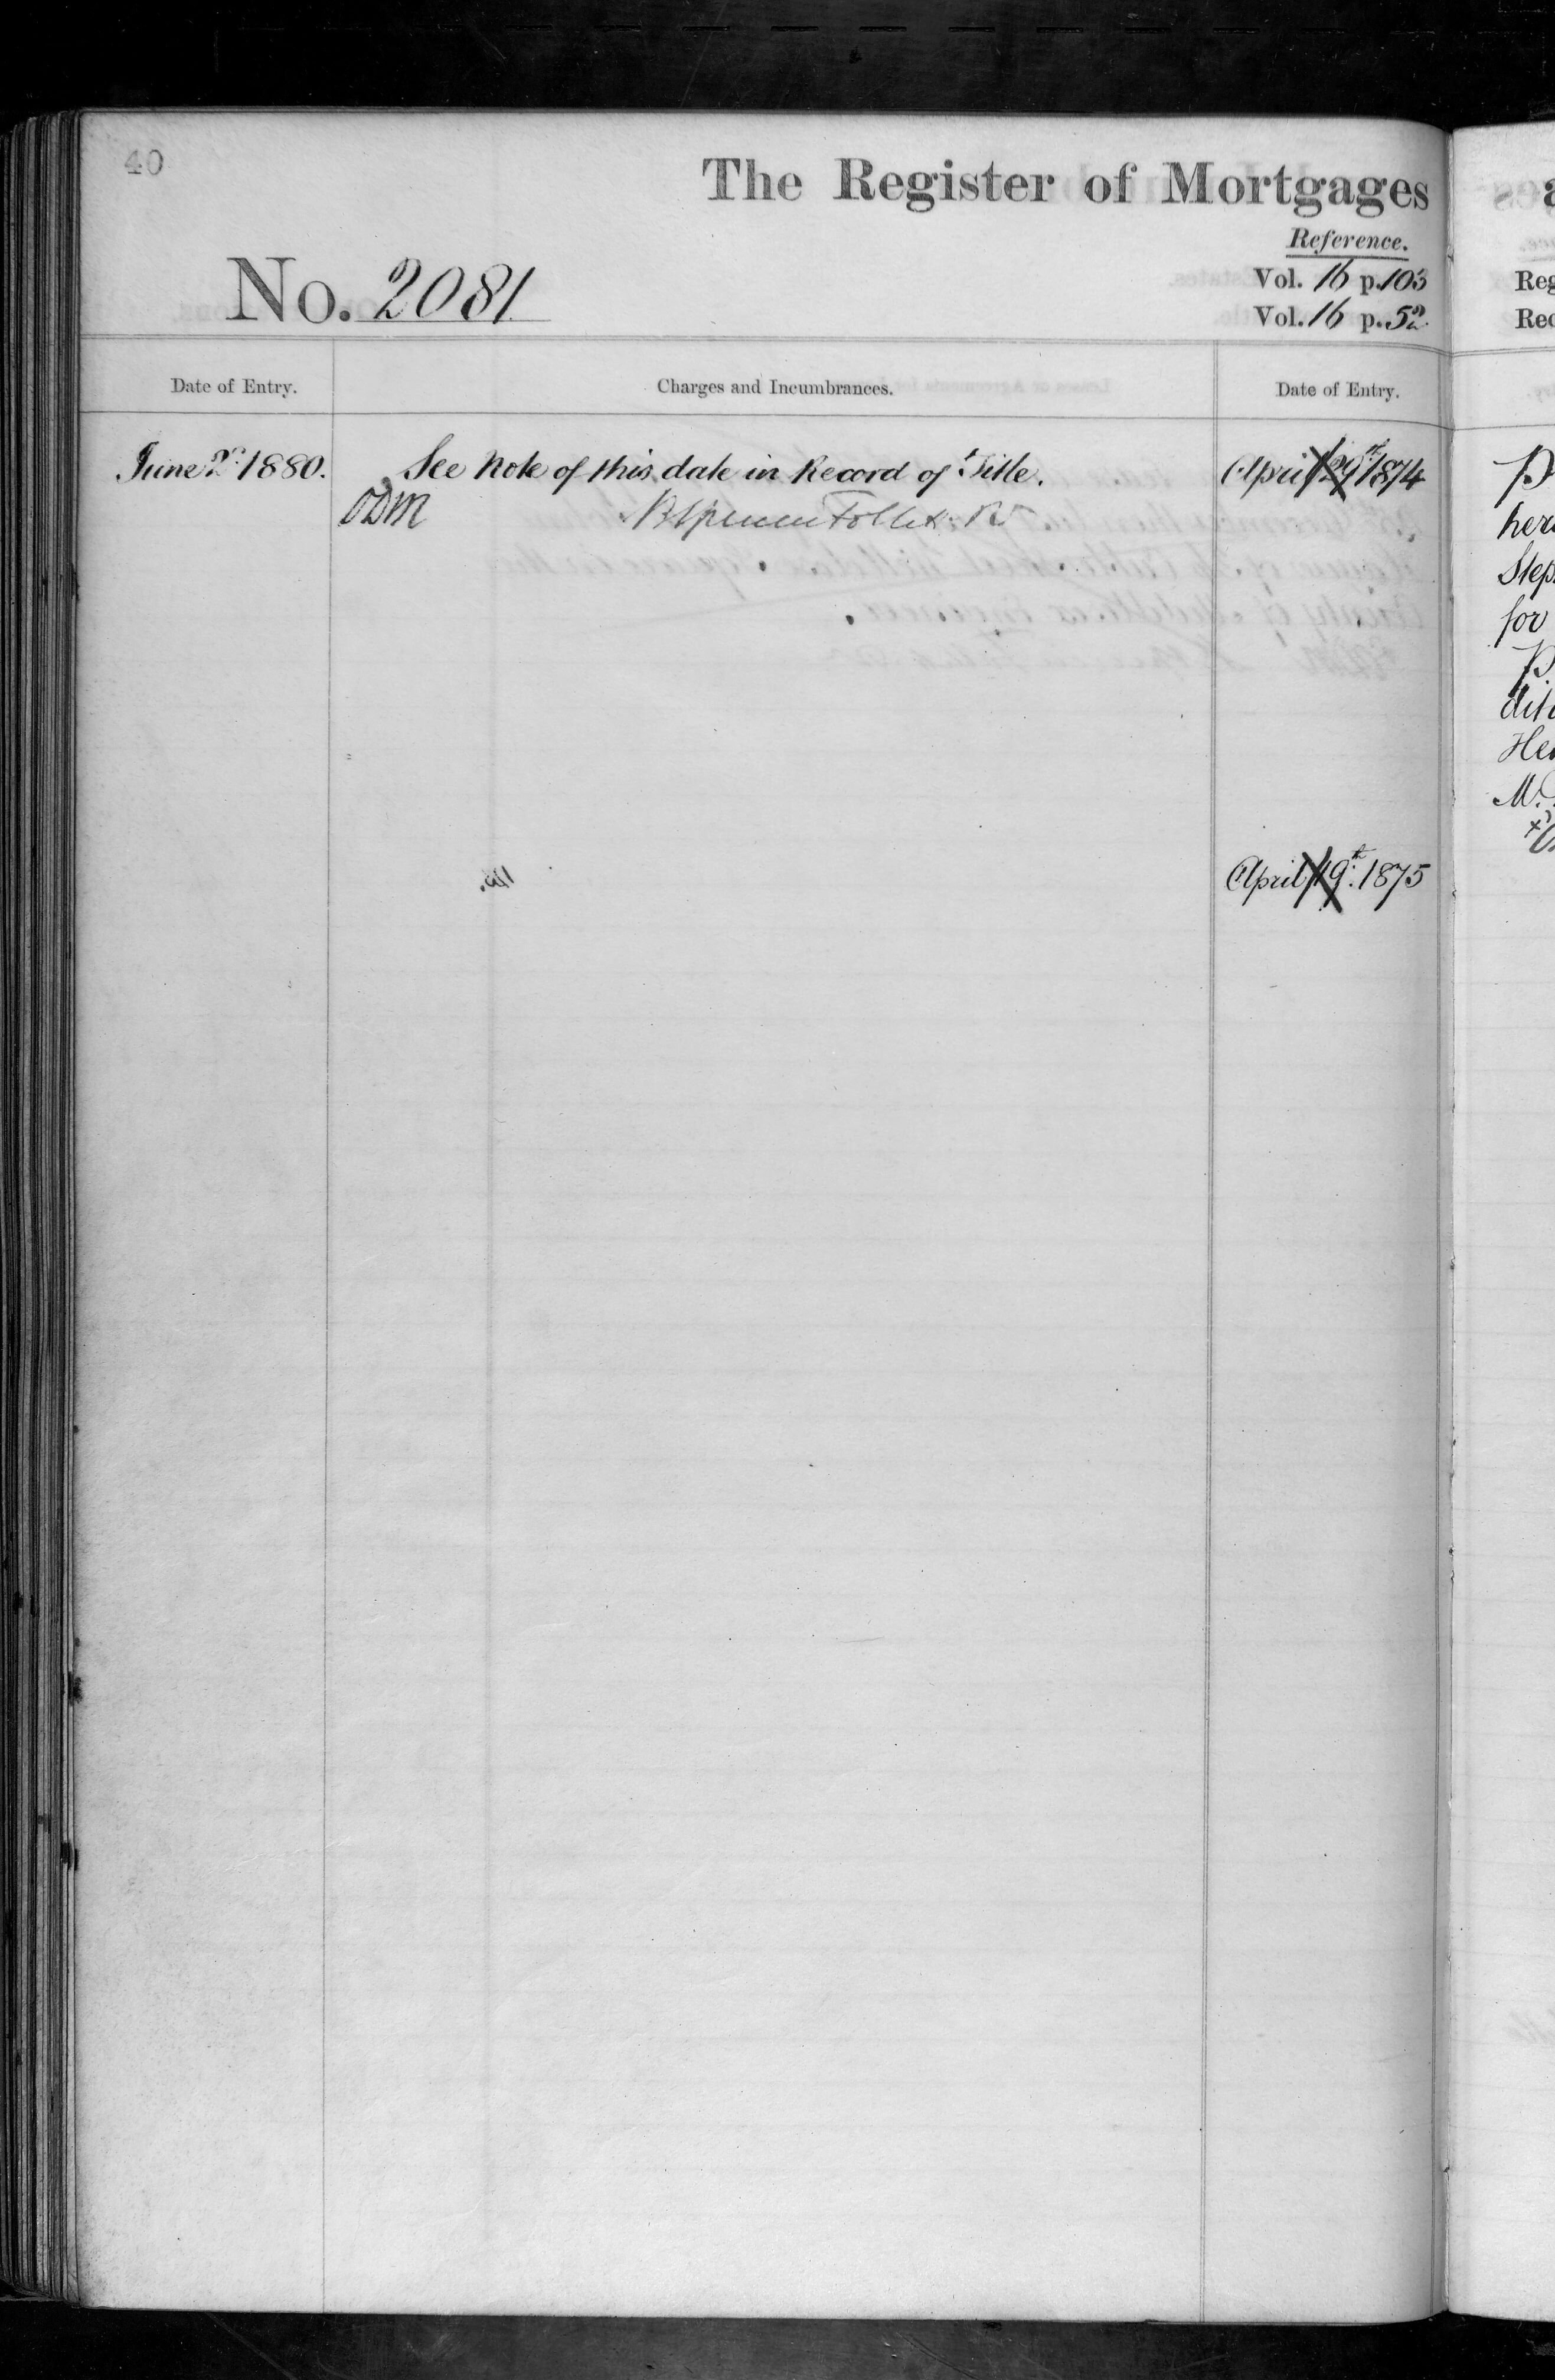 40
The Register of Mortgages
Reference.
No. 2081
Vol. 16 p. 103
Vol. 16 p. 52
Reg
Rec
Date of Entry.
Charges and Incumbrances.
Date of Entry.
June 2d. 1880.
See Note of this date in Record of Title.
April 29th 1874
ODM
Follett R
her
Step
for
April 19th. 1875